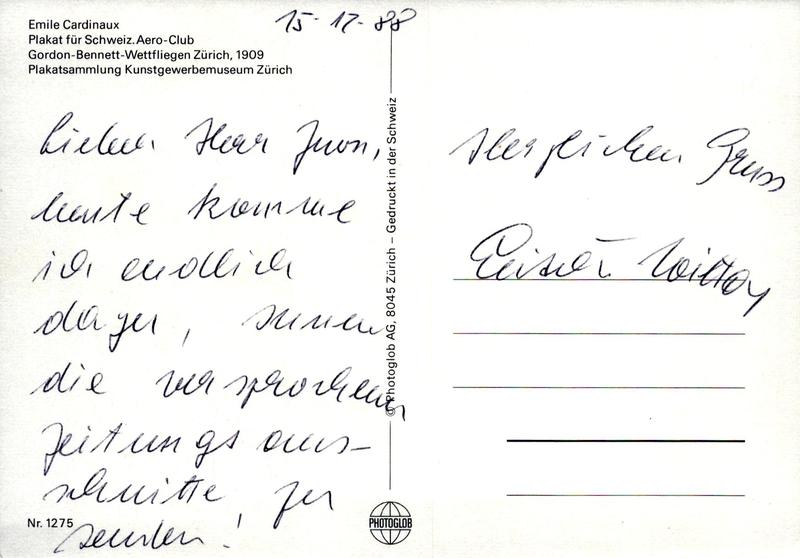 Emile Cardinaux
Plakat für Schweiz. Aero-Club
Gordon-Bennett-Wettfliegen Zürich, 1909
Plakatsammlung Kunstgewerbemuseum Zürich
15.12.88
Lieber Herr
heute komme
ich endlich
dazu, Ihnen
die versprochenen
Zeitungsaus-
schnitte zu
senden!
Nr. 1275
© Photoglob AG, 8045 Zürich – Gedruckt in der Schweiz
PHOTOGLOB
Herzlichen Gruss